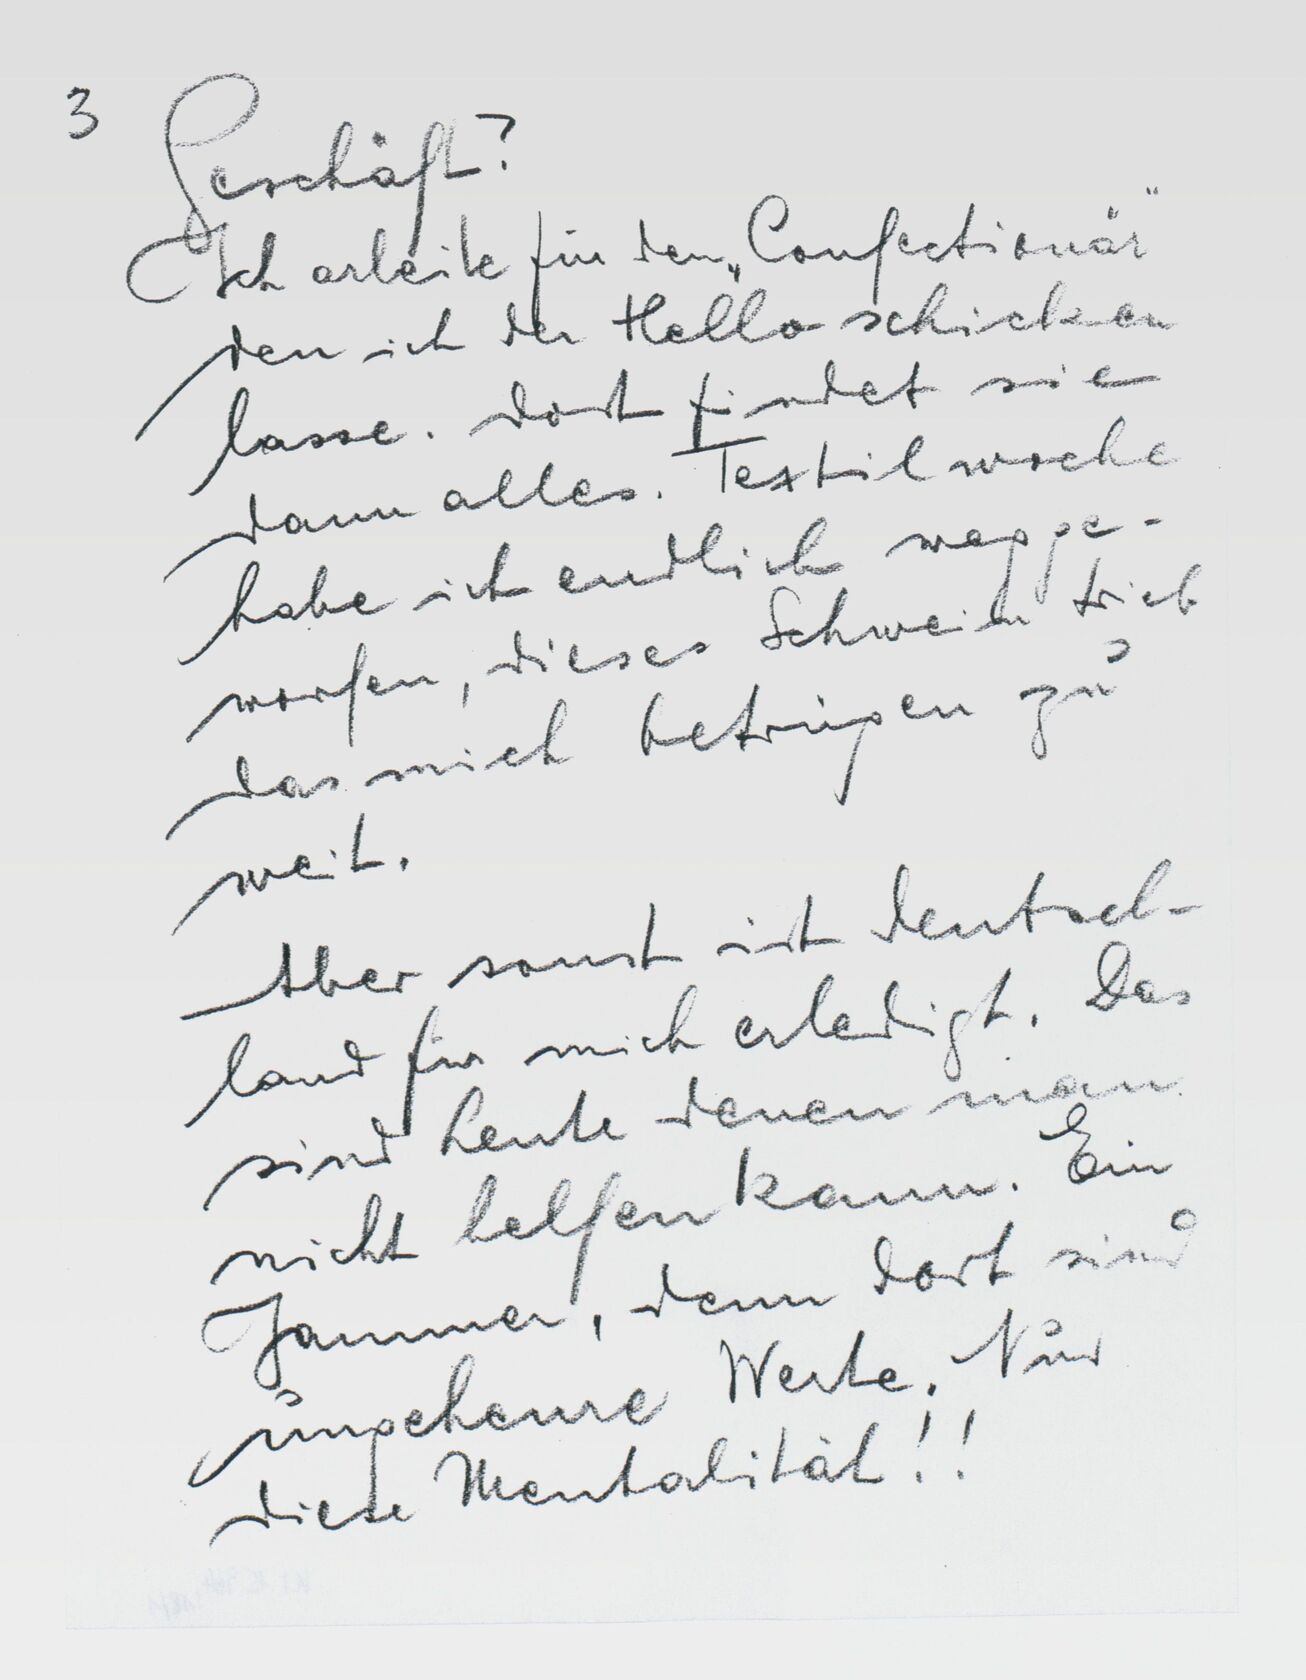 3
Geschäft?
Ich arbeite für den „Confectionär"
den ich der Hella schicken
lasse. dort findet sie
dann alles. Textilwoche
habe ich endlich wegge-
worfen, dieses Schwein trieb
das mich betrügen zu
weit.
Aber sonst ist deutsch-
land für mich erledigt. Das
sind heute denen man
nicht helfen kann. Ein
Jammer, denn dort sind
ungeheure Werte. Nur
diese Mentalität!!